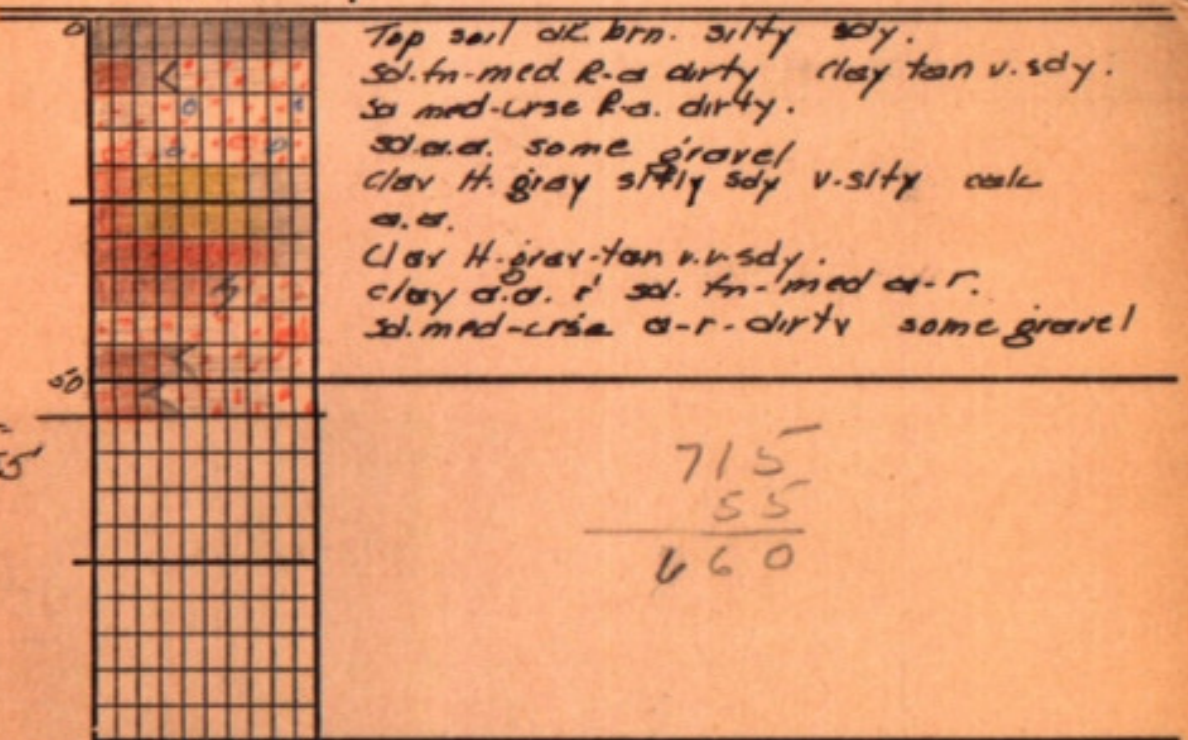 0
Top soil dk. brn. silty sdy.
sd. fn-med. R-a dirty clay tan v. sdy.
sd med-crse R-a. dirty.
sd. a.a. some gravel
clay lt. gray sltly sdy v-slty calc
a.a.
Clay lt-gray-tan v.v-sdy.
clay a.a. & sd. fn-med a-r.
sd. med-crse a-r-dirty some gravel
50
55
715
55
660